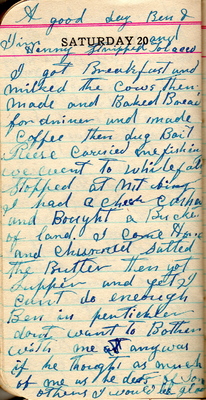 A good day Ben &
Tim and
SATURDAY 20
Henny Stripped tobaco
I got Breakfust and
milked the cows then
made and Baked Bread
for dinner and made
Coffee then dug Bait
Reese Carried me fishing
we went to whitefall
Stopped at Mt
I had a check cashed
and Bought a Bucket
of lard, I come Home
and churned salted
the Butter then got
Supper and yet I
cant do enough
Ben in perticlar
dont want to Bother
with me at anyway
if he thought as much
of me as he does of som
others I would be glad